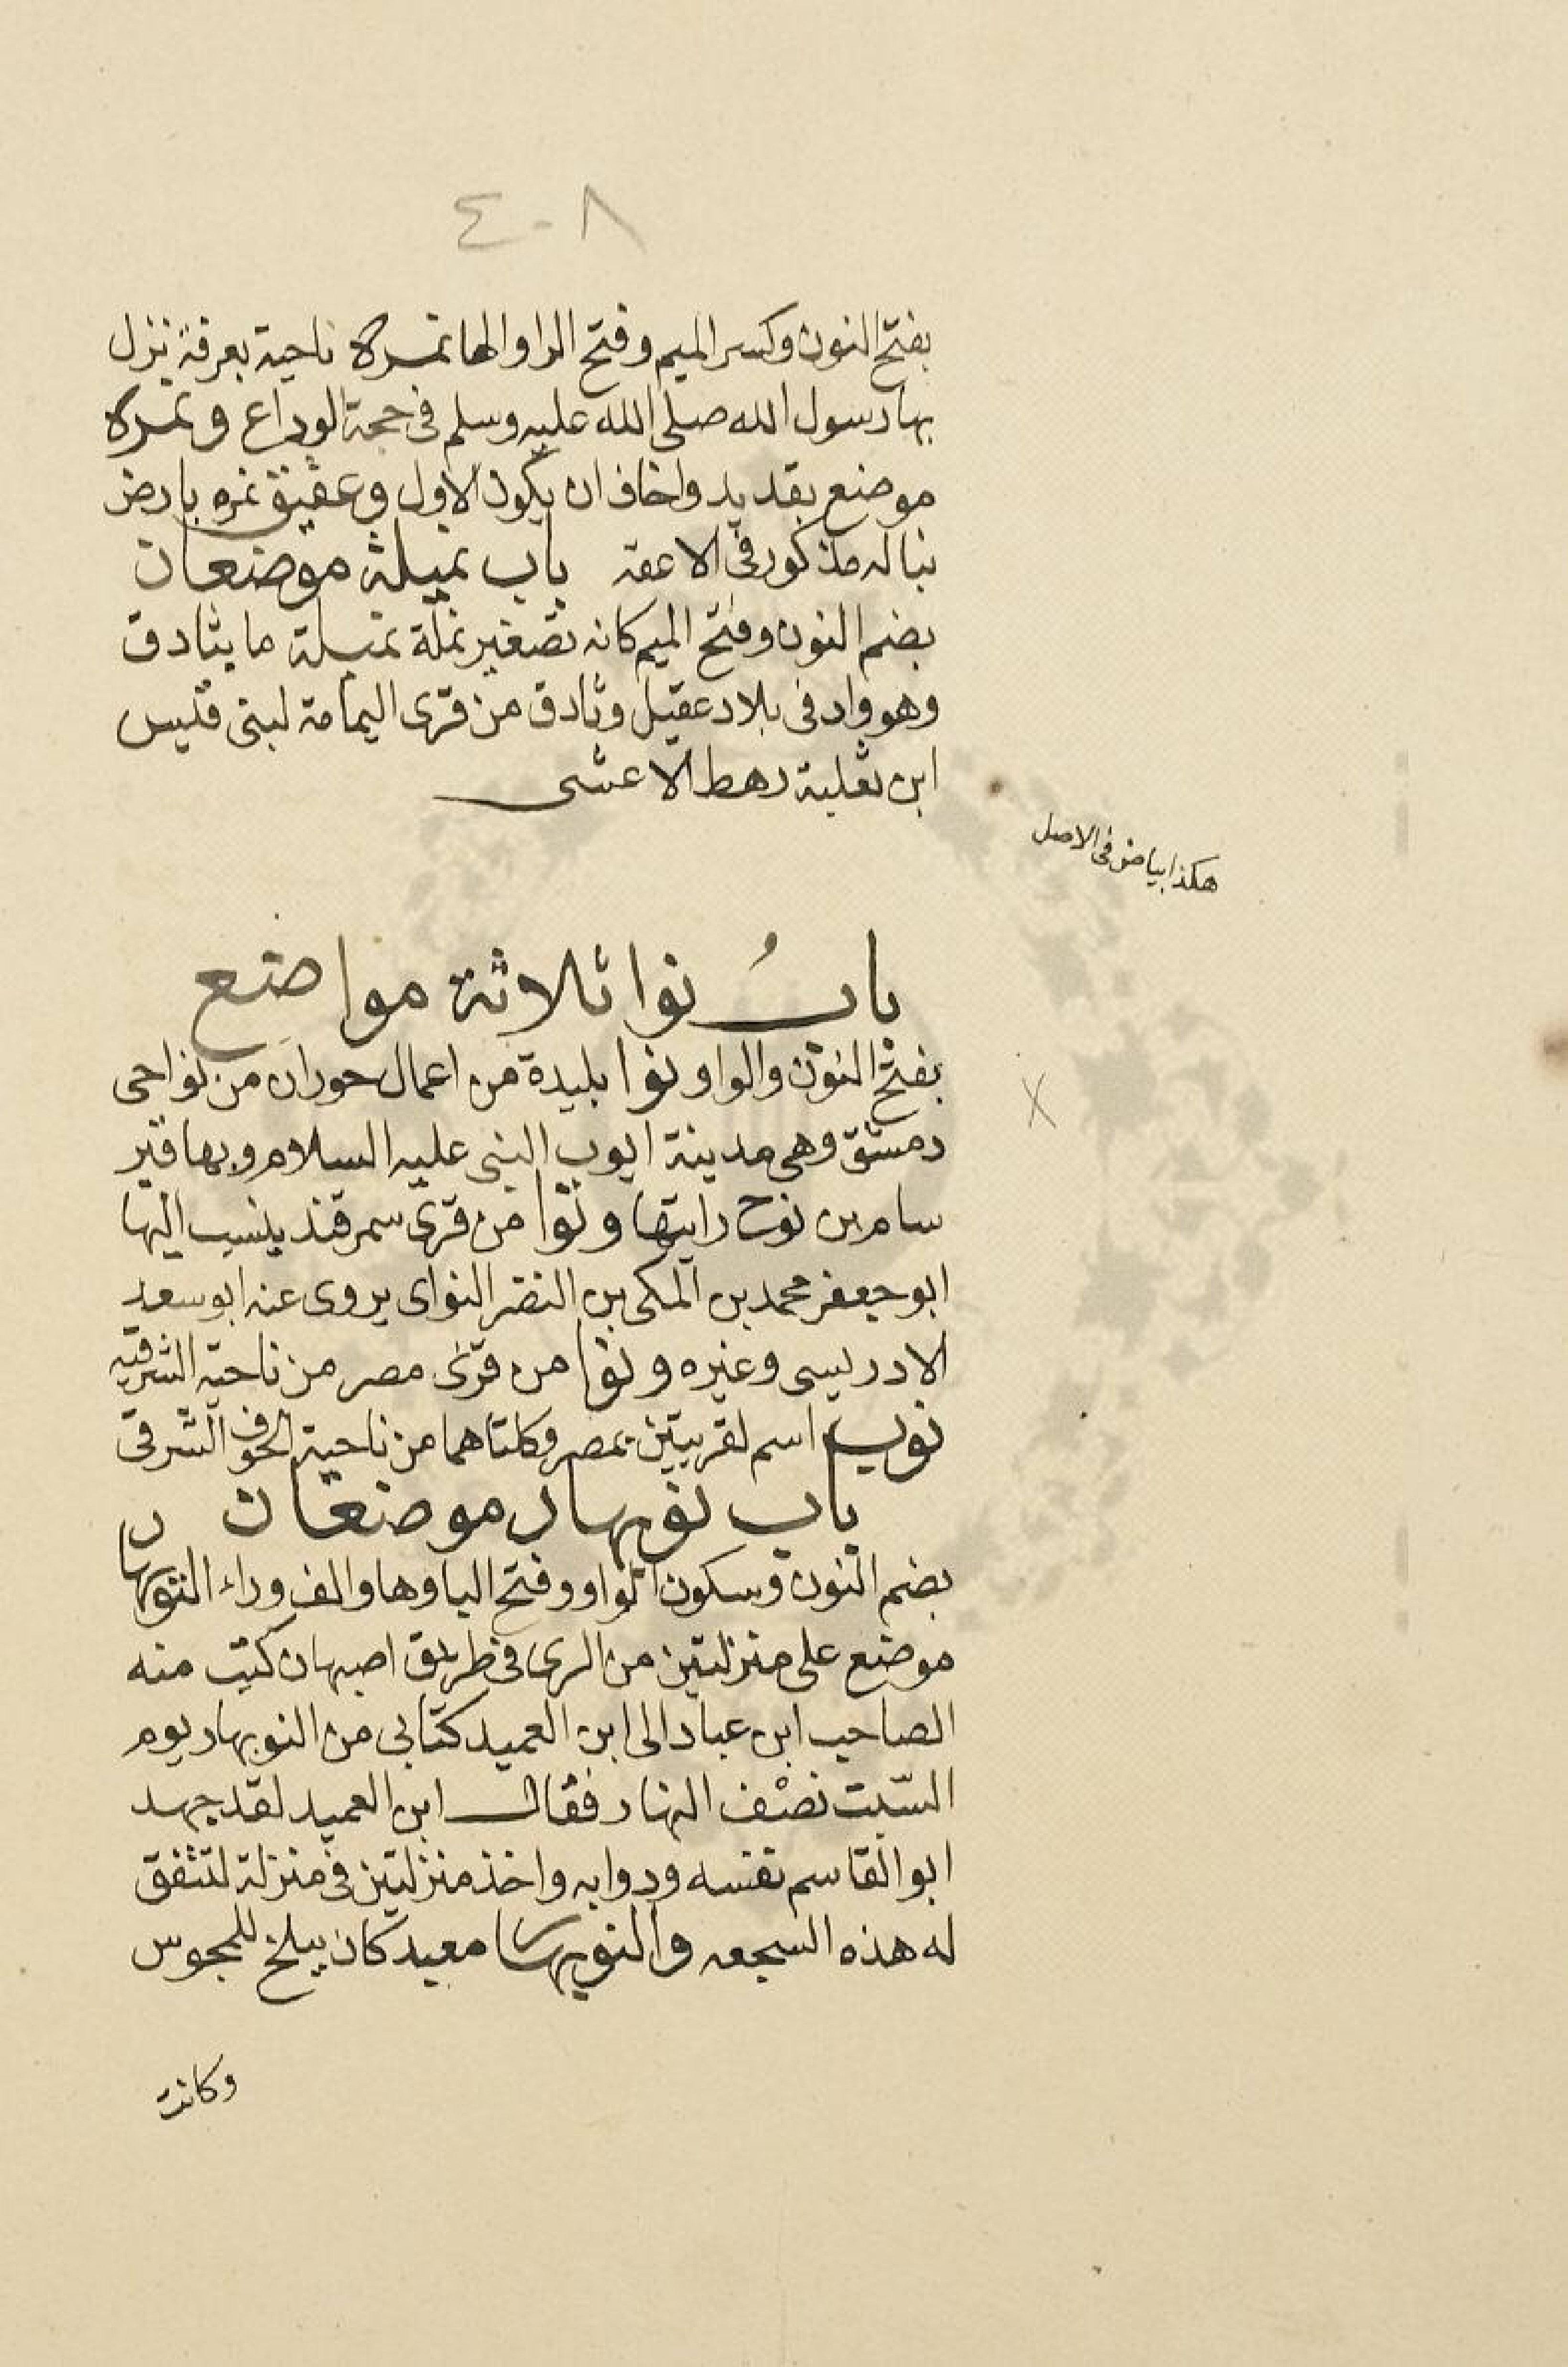 ٤٠٨
بفتح النون وكسر الميم وفتح الرا والها نمره ناحية بعرفة نزل
بها رسول الله صلى الله عليه وسلم فى حجة الوداع ونمره
موضع بقديد واخاف ان يكون الاول وعقيق نمره بارض
نباله مذكور فى الاعقه باب نميلة موضعان
بضم النون وفتح الميم كانه تصغير نملة نميلة ما بثادق
وهو واد فى بلاد عقيل وثادق من قرى اليمامة لبنى قليس
ابن ثعلبة رهط الاعشى
هكذا بياض فى الاصل
باب نوا ثلاثة مواضع
بفتح النون والواو نوا بليدة من اعمال حوران من نواحى
دمشق وهى مدينة ايوب النبى عليه السلام وبها قبر
سام بن نوح رايتها ونوا من قرى سمرقند ينسب اليها
ابو جعفر محمد بن المكى بن النضر النواى يروى عنه ابو سعد
الادريسى وغيره ونوا من قرى مصر من ناحية الشرقيه
نوب اسم لقريتين بمصر وكلتاهما من ناحية الحوف الشرقى
باب نوبهار موضعان
بضم النون وسكون الواو وفتح البا وها والف وراء النوبهار
موضع على منزلتين من الرى فى طريق اصبهان كتب منه
الصاحب ابن عباد الى ابن العميد كتابى من النوبهار يوم
السّبت نصْف النهار فقال ابن العميد لقد جهد
ابو القاسم نفسه ودوابه واخذ منزلتين فى منزلة لتتفق
له هذه السجعه والنوبهار معبد كان ببلخ للمجوس
وكانت